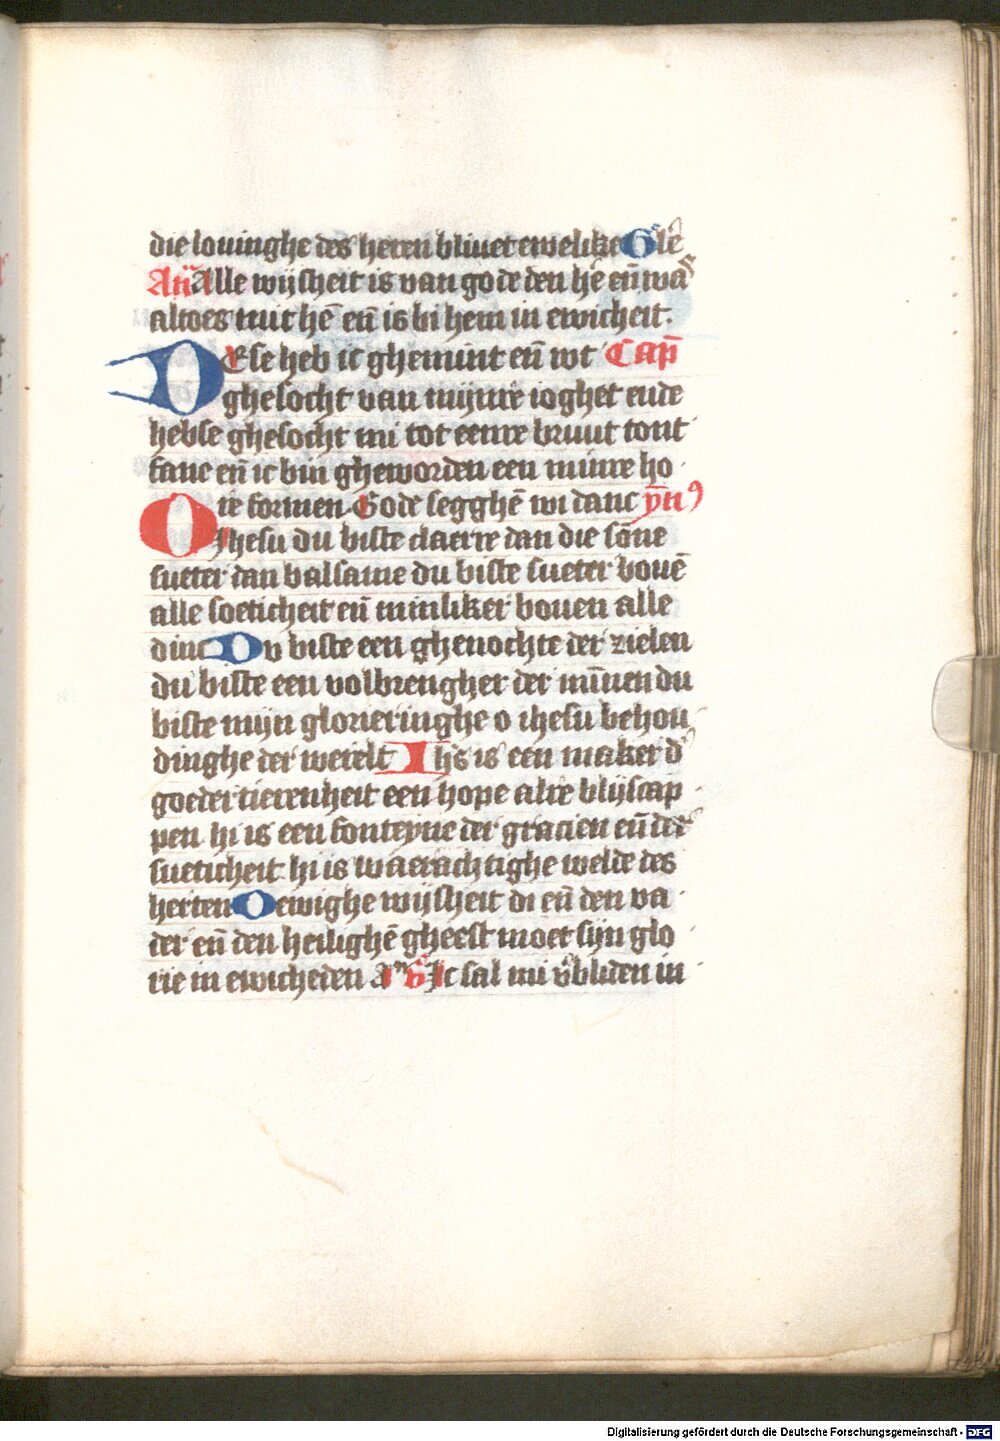 die louinghe des heren bliuet ewelike Glē
Añ Alle wijsheit is van gode den hē eñ was
altoes mit hē eñ is bi hem in ewicheit.
DEse heb ic ghemint eñ wt Cap̄
ghesocht van mijnre ioghet ende
hebse ghesocht mi tot eenre bruut tont
fane eñ ic bin gheworden een minre ho
re formen Gode segghē wi danc ȳn
O Ihesu du biste claerre dan die sōne
sueter dan balsame du biste sueter bouē
alle soeticheit eñ minliker bouen alle
dinc Du biste een ghenochte der zielen
du biste een volbrengher der mīnen du
biste mijn glorieringhe o ihesu behou
dinghe der werelt Ihs is een maker d'
goedertierenheit een hope alre blijscap
pen hi is een fonteyne der gracien eñ der
sueticheit hi is waerachtighe welde des
herten O ewighe wijsheit di eñ den va
der eñ den heilighē gheest moet sijn glo
rie in ewicheden amͫ v̊ Ic sal mi v̊bliden in
Digitalisierung gefördert durch die Deutsche Forschungsgemeinschaft - DFG